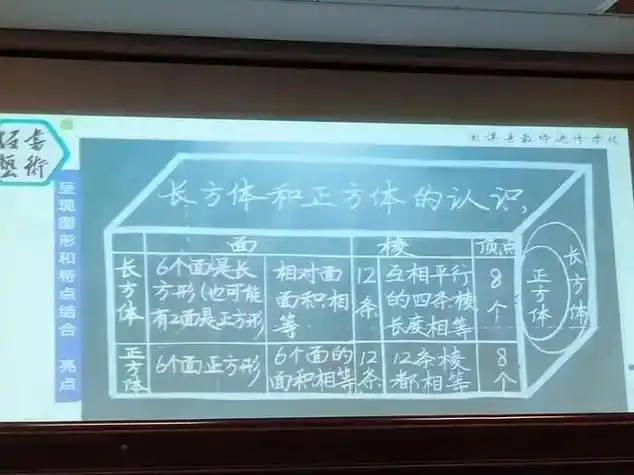 板书
藝術
呈现图形和特点结合 亮点
长方体和正方体的认识
面 棱 顶点
长方体
6个面是长
方形(也可能
有2面是正方形
相对面
面积相
等
12
条
互相平行
的四条棱
长度相等
8
个
正方体
6个面正方形
6个面的
面积相等
12
条
12条棱
都相等
8
个
正方体
长方体